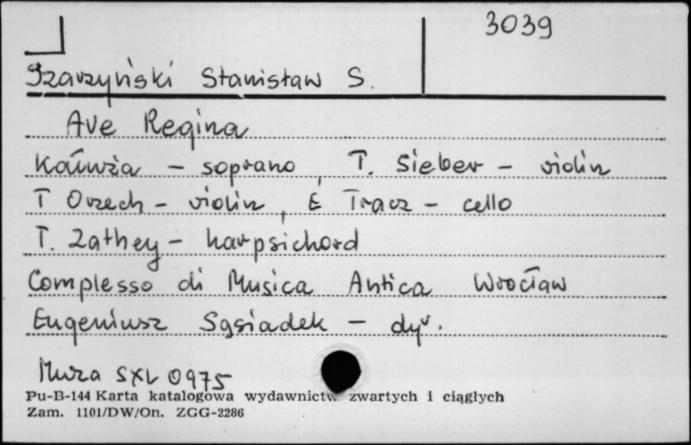 3039
Szarzyński Stanisław S.
Ave Regina
Kałuża – soprano, T. Sieber – violin
T Orzech – violin, E Tracz – cello
T. Zathey – harpsichord
Complesso di Musica Antica Wrocław
Eugeniusz Sąsiadek – dyr.
Muza SXL 0975
Pu-B-144 Karta katalogowa wydawnictw zwartych i ciągłych
Zam. 1101/DW/On. ZGG-2286